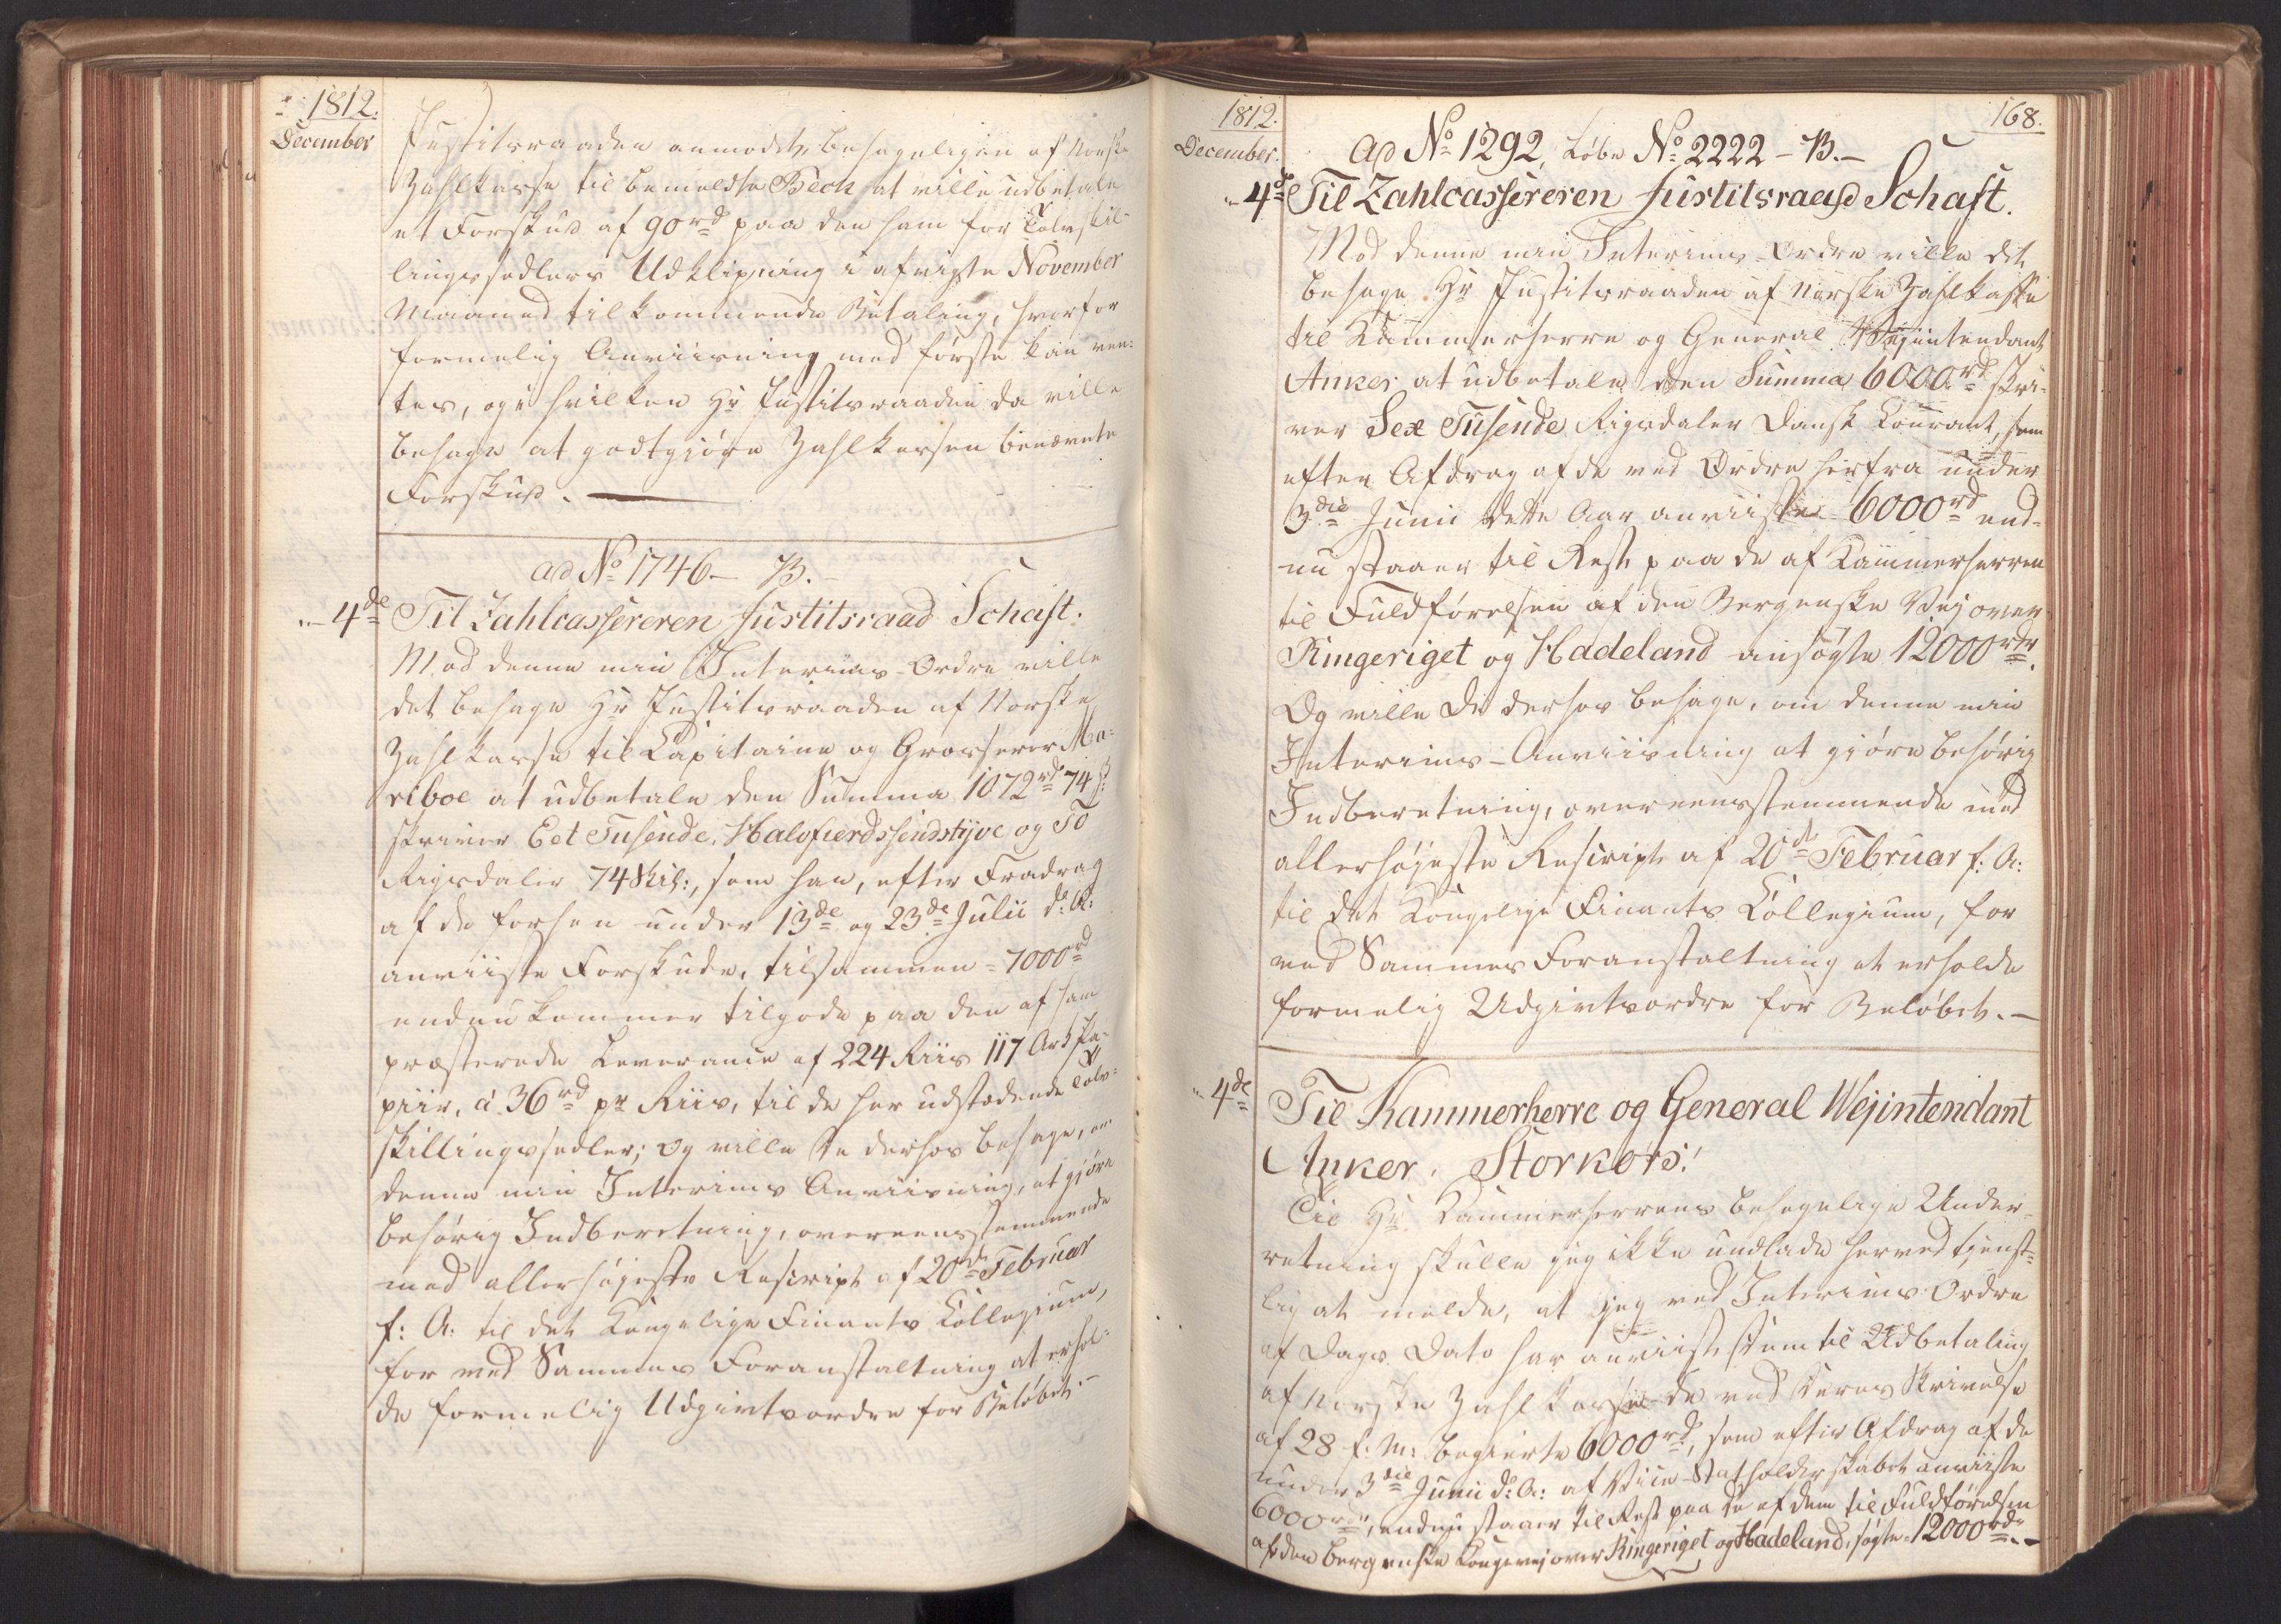 1812.
December
Justitsraaden anmodes behageligen af Norske
Zahlkasse til bemeldte Beck at ville udbetale
et Forskud af 90rd paa den ham for Tolvskil-
lingssedlers Udklipning i afvigte November
Maaned tilkommende Betaling, hvorfor
formelig Anviisning med første kan ven-
tes, og i hvilken Hr Justitsraaden da ville
behage at godtgjøre Zahlkassen benævnte
Forskud.
ad No 1746 – B. –
„– 4de Til Zahlcassereren Justitsraad Schaft.
Mod denne min Interims-Ordre ville
det behage Hr Justitsraaden af Norske
Zahlkasse til Capitaine og Grosserer Ma-
riboe at udbetale den Summa 1072rd 74ß
skriver Eet Tusende, Halvfierdssindstyve og To
Rigsdaler 74 Skil:, som han, efter Fradrag
af de forhen under 13de og 23de Julii d: A:
anviiste Forskude, tilsammen = 7000rd
endnu kommer tilgode paa den af ham
præsterede Leverance af 224 Riis 117 Ark Pa-
piir, á 36rd pr Riis, til de her udstædende Tolv-
skillingssedler; Og ville De derhos behage, om
denne min Interims Anviisning, at gjøre
behørig Indberetning, overeensstemmende
med allerhøjeste Rescript af 20de Februar
f: A: til det Kongelige Finants Collegium,
for ved Sammes Foranstaltning at erhol-
de formelig Udgivtsordre for Beløbet. –
1812.
December.
168.
ad No 1292, Løbe No 2222 – B. –
„– 4de Til Zahlcassereren Justitsraad Schaft.
Mod denne min Interims-Ordre ville det
behage Hr Justitsraaden af Norske Zahlkasse
til Kammerherre og General Vejintendant
Anker at udbetale den Summa 6000rd skri-
ver Sex Tusende Rigsdaler Dansk Courant, som
efter Afdrag af de ved Ordre herfra under
3die Junii dette Aar anviiste 6000rd end-
nu staaer til Rest paa de af Kammerherren
til Fuldførelsen af den Bergenske Vej over
Ringeriget og Hadeland ansøgte 12000rdr.
Og ville De derhos behage, om denne min
Interims-Anviisning at gjøre behørig
Indberetning, overeensstemmende med
allerhøjeste Rescript af 20de Februar f: A:
til det Kongelige Finants Collegium, for
ved Sammes Foranstaltning at erholde
formelig Udgivtsordre for Beløbet. –
„– 4de Til Kammerherre og General Wejintendant
Anker. Storkors!
Til Hr. Kammerherrens behagelige Under-
retning skulle jeg ikke undlade herved tjenst-
lig at melde, at jeg ved Interims Ordre
af Dags Dato har anviist Dem til Udbetaling
af Norske Zahlkasse de ved Deres Skrivelse
af 28 f: M: begierte 6000rd, som efter Afdrag af de
under 3die Junii d: A: af Vice-Statholderskabet anviiste
6000rdr, endnu staaer til Rest paa de af Dem til Fuldførelsen
af den bergenske Kongevej over Ringeriget og Hadeland, søgte 12000rdr. –